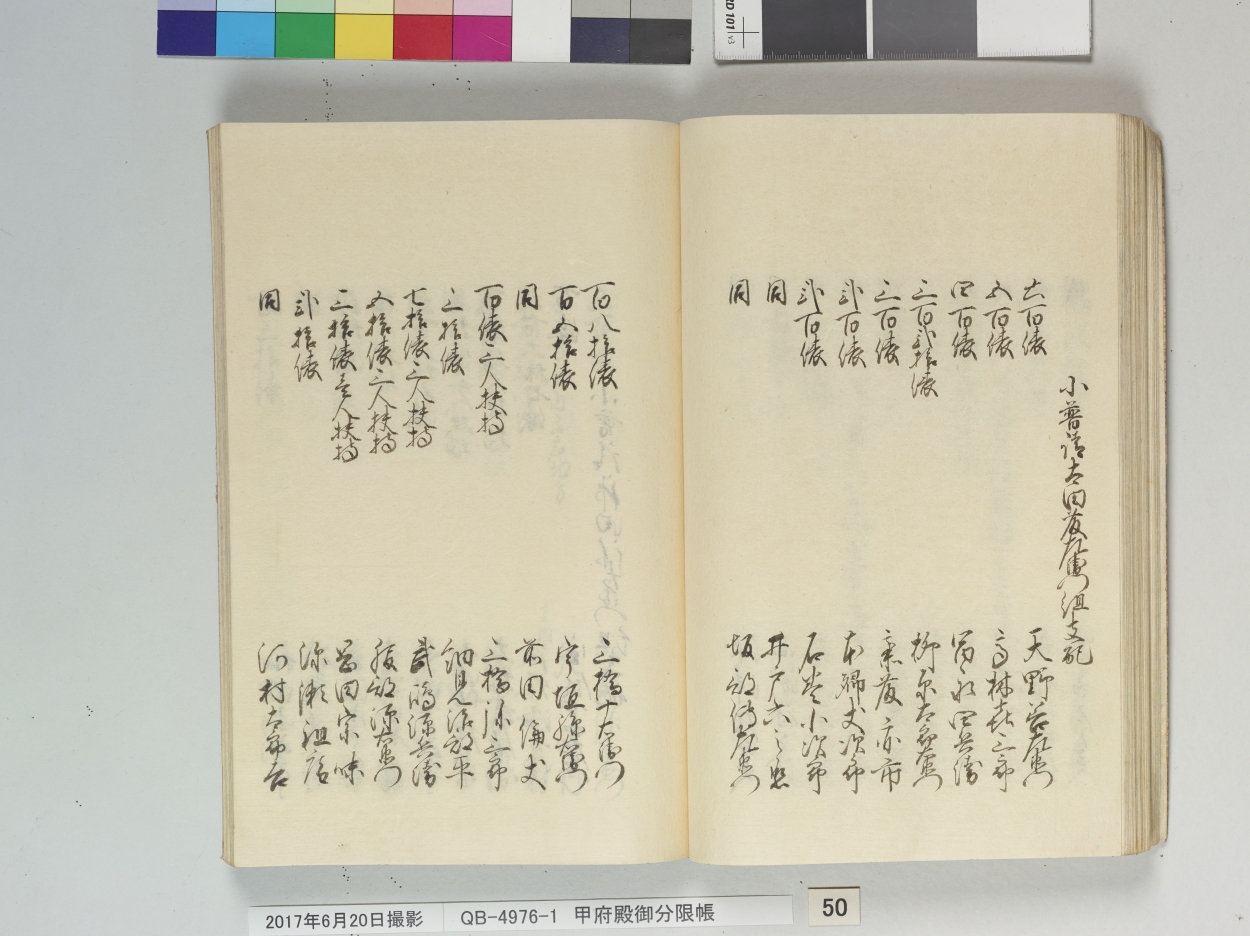 小普請太田友左衛門組支配
六百俵 天野
五百俵 高林喜三郎
四百俵 富永四兵衛
三百弐拾俵 柳原太郎右衛門
三百俵 斎藤 市
弐百俵 本郷 次郎
弐百俵 石巻小次郎
同 井戸六之
同 坂部傳左衛門
百八拾俵 三橋十左衛門
百五拾俵 宇垣孫右衛門
同 前田
百俵三人扶持 三橋弥三郎
三拾俵 細見治部平
七拾俵三人扶持 武嶋源兵衛
五拾俵三人扶持 服部源右衛門
三拾俵壱人扶持 岡田宗味
弐拾俵 深瀬祖
同 河村太郎吉
2017年6月20日撮影 QB-4976-1 甲府殿御分限帳
50